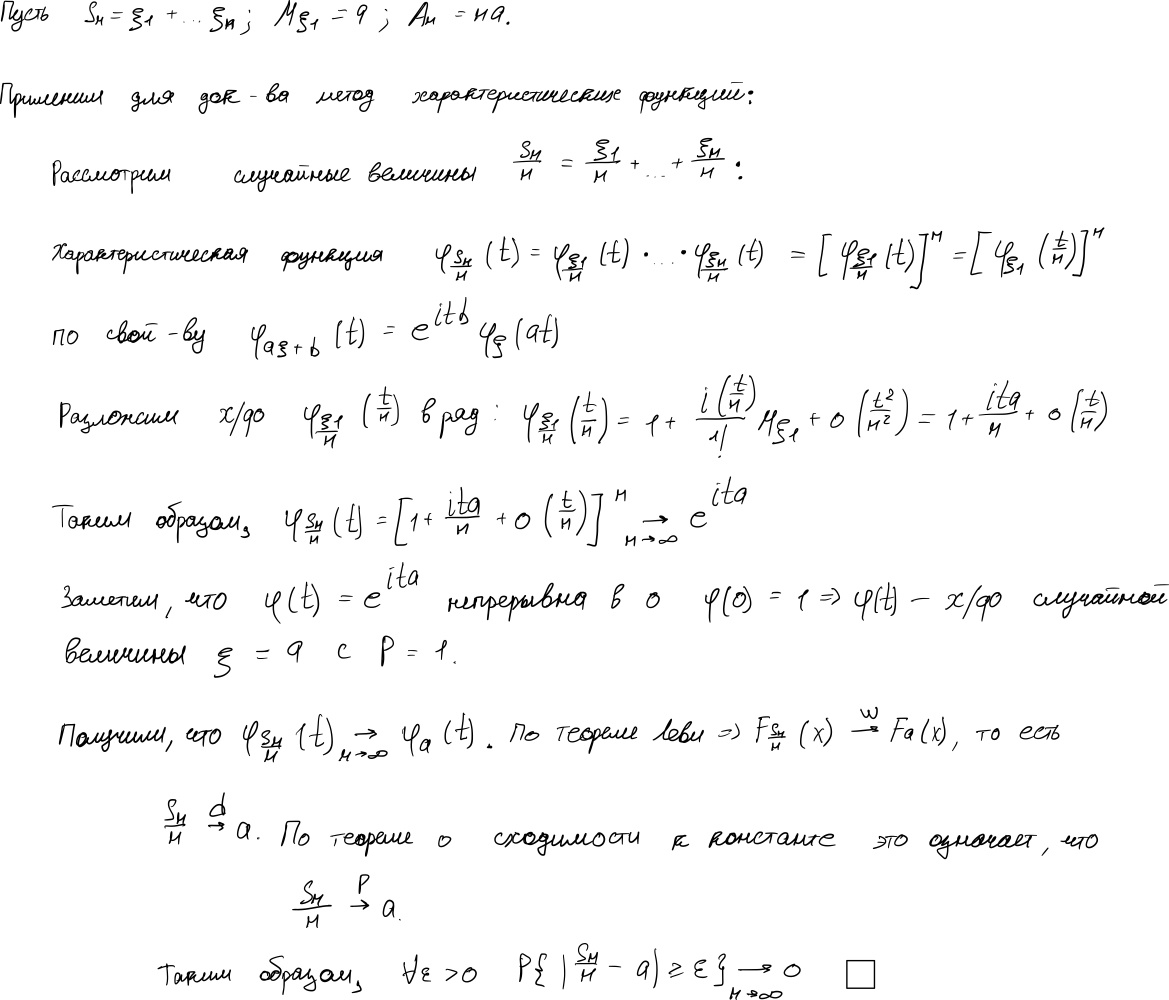 Пусть Sн = ξ1 + ... ξн ; Mξ1 = a ; Aн = нa.
Применим для док-ва метод характеристических функций:
Рассмотрим случайные величины Sн/н = ξ1/н + ... + ξн/н :
Характеристическая функция φ_{Sн/н}(t) = φ_{ξ1/н}(t) · ... · φ_{ξн/н}(t) = [φ_{ξ1/н}(t)]^н = [φ_{ξ1}(t/н)]^н
по свой-ву φ_{aξ+b}(t) = e^{itb} φ_ξ(at)
Разложим х/ф φ_{ξ1/н}(t/н) в ряд : φ_{ξ1/н}(t/н) = 1 + i(t/н)/1! Mξ1 + o(t²/н²) = 1 + ita/н + o(t/н)
Таким образом, φ_{Sн/н}(t) = [1 + ita/н + o(t/н)]^н →_{н→∞} e^{ita}
Заметем, что φ(t) = e^{ita} непрерывна в 0 φ(0) = 1 => φ(t) – х/ф случайной
величины ξ = a с P = 1.
Получили, что φ_{Sн/н}(t) →_{н→∞} φ_a(t). По теореме Леви => F_{Sн/н}(x) →^w Fa(x), то есть
Sн/н →^d a. По теореме о сходимости к константе это означает, что
Sн/н →^P a.
Таким образом, ∀ε > 0 P{ |Sн/н – a| ≥ ε } →_{н→∞} 0 □